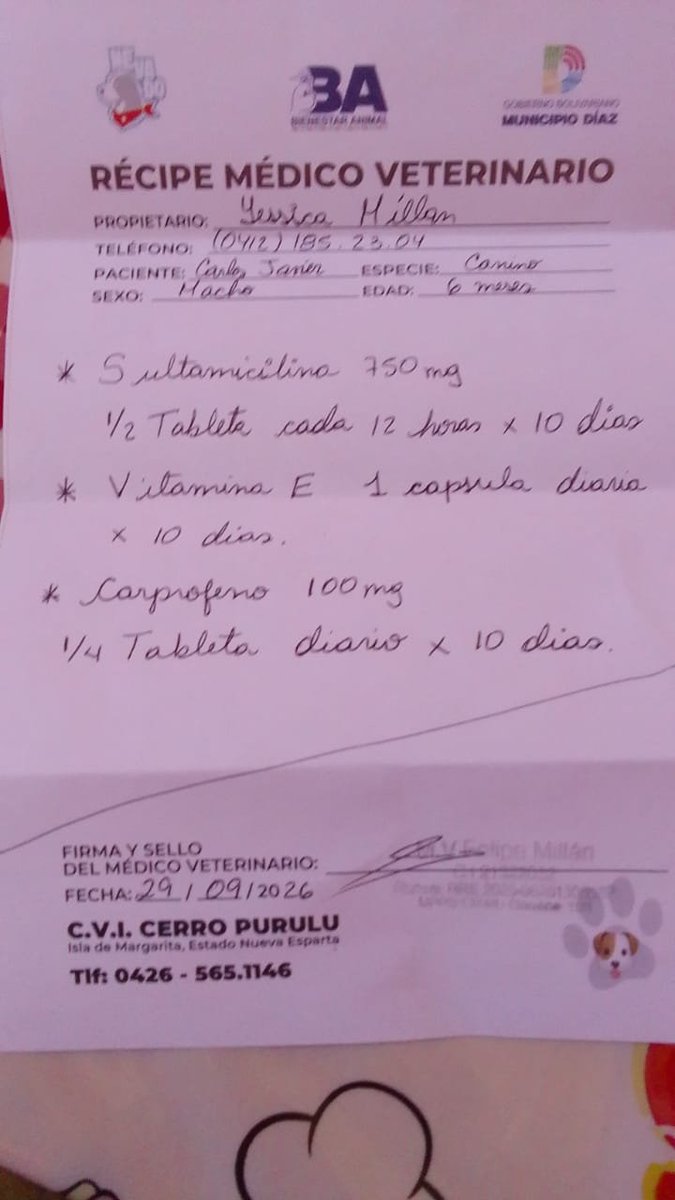 NEVADO
BA
BIENESTAR ANIMAL
GOBIERNO BOLIVARIANO
MUNICIPIO DÍAZ
RÉCIPE MÉDICO VETERINARIO
PROPIETARIO: Yessica Millan
TELÉFONO: (0412) 185.23.04
PACIENTE: Carlos Javier ESPECIE: Canino
SEXO: Macho EDAD: 6 meses
* Sultamicilina 750 mg
1/2 Tableta cada 12 horas x 10 dias
* Vitamina E 1 capsula diaria
x 10 dias.
* Carprofeno 100 mg
1/4 Tableta diario x 10 dias.
FIRMA Y SELLO
DEL MÉDICO VETERINARIO:
M.V Felipe Millán
FECHA: 29/09/2026
C.V.I. CERRO PURULU
Isla de Margarita, Estado Nueva Esparta
Tlf: 0426 - 565.1146